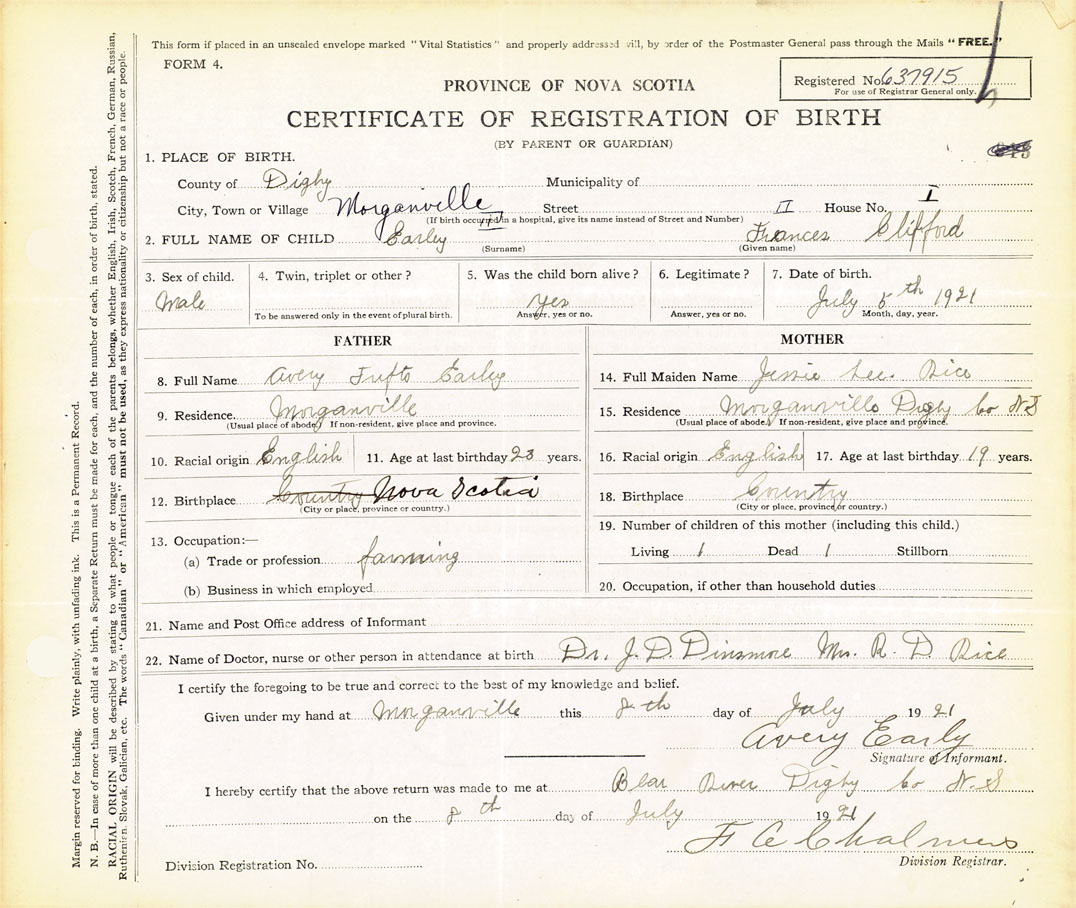 This form if placed in an unsealed envelope marked "Vital Statistics" and properly addressed will, by order of the Postmaster General pass through the Mails "FREE."
FORM 4.
Registered No. 637915
For use of Registrar General only.
PROVINCE OF NOVA SCOTIA
CERTIFICATE OF REGISTRATION OF BIRTH
(BY PARENT OR GUARDIAN)
1. PLACE OF BIRTH.
County of Digby Municipality of
City, Town or Village Morganville Street II House No. I
(If birth occurred in a hospital, give its name instead of Street and Number)
2. FULL NAME OF CHILD Earley Frances Clifford
(Surname) (Given name)
3. Sex of child. 4. Twin, triplet or other? 5. Was the child born alive? 6. Legitimate? 7. Date of birth.
Male yes July 5th 1921
To be answered only in the event of plural birth. Answer, yes or no. Answer, yes or no. Month, day, year.
FATHER
8. Full Name Avery Tufts Earley
9. Residence. Morganville
(Usual place of abode.) If non-resident, give place and province.
10. Racial origin English 11. Age at last birthday 23 years.
12. Birthplace Country Nova Scotia
(City or place, province or country.)
13. Occupation:—
(a) Trade or profession farming
(b) Business in which employed
MOTHER
14. Full Maiden Name Jessie Lee. Rice
15. Residence Morganville Digby Co N.S
(Usual place of abode.) If non-resident, give place and province.
16. Racial origin English 17. Age at last birthday 19 years.
18. Birthplace Country
(City or place, province or country.)
19. Number of children of this mother (including this child.)
Living 1 Dead 1 Stillborn
20. Occupation, if other than household duties
21. Name and Post Office address of Informant
22. Name of Doctor, nurse or other person in attendance at birth Dr. J. D. Dinsmore Mrs. R. D Rice
I certify the foregoing to be true and correct to the best of my knowledge and belief.
Given under my hand at Morganville this 8th day of July 1921
Avery Early
Signature of Informant.
I hereby certify that the above return was made to me at Bear River Digby Co N.S
on the 8th day of July 1921
F A Chalmers
Division Registrar.
Division Registration No.
Margin reserved for binding. Write plainly, with unfading ink. This is a Permanent Record.
N. B.—In case of more than one child at a birth, a Separate Return must be made for each, and the number of each, in order of birth, stated.
RACIAL ORIGIN will be described by stating to what people or tongue each of the parents belongs, whether English, Irish, Scotch, French, German, Russian,
Ruthenian, Slovak, Galician, etc. The words "Canadian" or "American" must not be used, as they express nationality or citizenship but not a race or people.